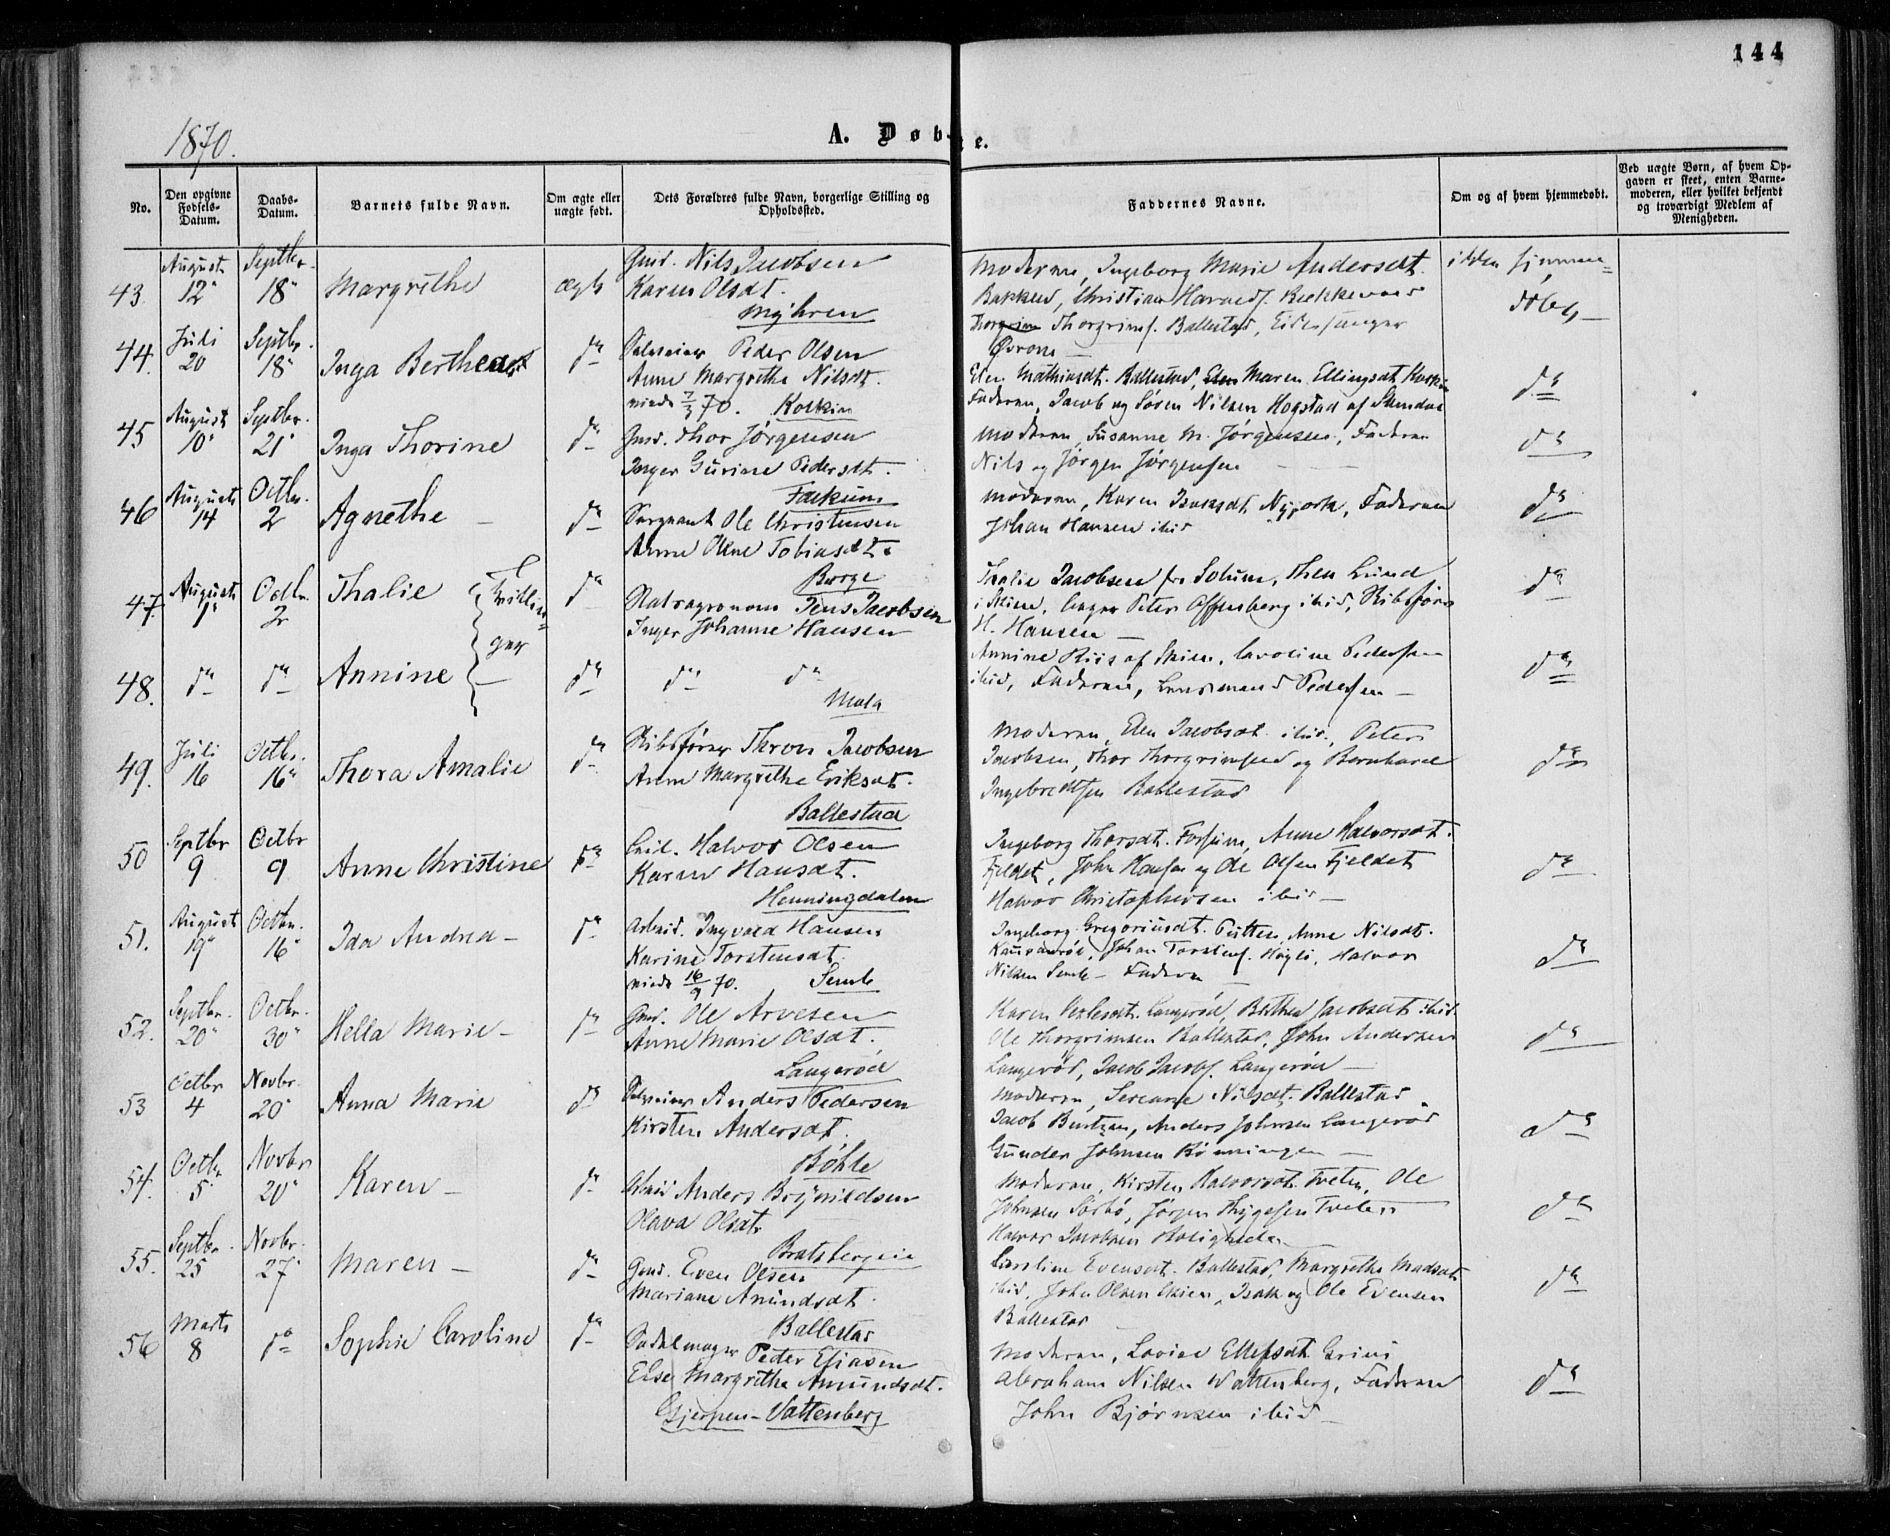 144
1870.
A. Døbte.
No.
Den opgivne Fødsels-Datum.
Daabs-Datum.
Barnets fulde Navn.
Om ægte eller uægte født.
Dets Forældres fulde Navn, borgerlige Stilling og Opholdssted.
Faddernes Navne.
Om og af hvem hjemmedøbt.
Ved uægte Børn, af hvem Opgaven er skeet, enten Barnemoderen, eller hvilket bekjendt og troværdigt Medlem af Menigheden.
43. August 12 Septbr. 18 Margrethe ægte Gmd. Nils Jacobsen
Karen Olsdt.
Myhren
Moderen, Ingeborg Marie Andersdt.
Bakken, Christian
Thorgrimf. Ballestad, Eidsfanger
ikke hjemmedøbt
44. Juli 20 Septbr. 18 Inga Berthea do Peder Olsen
Anne Margrethe Nilsdt.
viede 7/3 70.
Elen Mathiasdt. Ballestad, Maren Ellingsdt.
Faderen, Jacob og Søren Nilsen Hogstad af
do
45 August 10 Septbr. 21 Inga Thorine do Gmd. Thor Jørgensen
Inger Gurine Pedersdt.
Falkum
Moderen, Susanne M. Jørgensen, Faderen
Nils og Jørgen Jørgensen
do
46 August 14 Octbr. 2 Agnethe do Sergeant Ole Christensen
Anne Oline Tobiasdt.
Borge
Moderen, Karen Isaksdt. Faderen
Johan Hansen ibid
do
47. August 1 Octbr. 2 Thalie Tvillinger do Statsagronom Jens Jacobsen
Inger Johanne Hansen
Thalie Jacobsen fra Solum, Thea Lund
i Skien, Peter ibid, Skibsfører
H. Hansen
do
48. do do Annine do do do
Mæla
Annine Riis af Skien, Caroline Pedersen
ibid, Faderen, Lensmand Pedersen
do
49. Juli 16 Octbr. 16 Thora Amalie do Skibsfører Thron Jacobsen
Anne Margrethe Eriksdt.
Ballestad
Moderen, Elen Jacobsdt. ibid, Peter
Jacobsen, Thor Thorgrimsen og Bernhard
Ingebretsen Ballestad
do
50 Septbr 9 Octbr 9 Anne Christine do Halvor Olsen
Karen Hansdt.
Henningdalen
Ingeborg Thorsdt. Anne Halvorsdt.
Fjeldet, John Hansen og Ole Olsen Fjeldet
Halvor Christophersen ibid
do
51. August 19 Octbr. 16 Ida Andrea do Arbeid. Ingvald Hansen
Karine Torstensdt.
viede 16/9 70. Semb
Ingeborg Gregoriusdt. Anne Nilsdt.
Johan Torstenf. Halvor
Nilsen Semb Faderen
do
52. Septbr. 20 Octbr. 30 Hella Marie do Gmd. Ole Arvesen
Anne Marie Olsdt.
Langerød
Karen Langerød, Berthe Jacobsdt. ibid
Ole Thorgrimsen Ballestad, John Andersen
Langerød, Jacob Jacobf. Langerød
do
53 Octbr 4 Novbr. 20 Anna Marie do Anders Pedersen
Kirsten Andersdt.
Bøhle
Moderen, Nilsdt. Ballestad
Jacob Anders Johnsen Langerød
Gunder Johnsen Rønningen
do
54. Octbr. 5 Novbr 20 Karen do Anders Brynildsen
Olava Olsdt.
Bratsbergeie
Moderen, Kirsten Halvorsdt. Tveten, Ole
Johnsen Sørbø, Jørgen Thygesen Tveten
Halvor Jacobsen
do
55. Septbr. 25 Novbr. 27 Maren do Gmd. Even Olsen
Mariane Amundsdt.
Ballestad
Caroline Evensdt. Ballestad, Margrethe Madsdt.
ibid, John Olsen Skien, Isak og Ole Evensen
Ballestad
do
56 Marts 8 do Sophie Caroline do Sadelmager Peder Eliasen
Else Margrethe Amundsdt.
Gjerpen - Vattenberg
Moderen, Lovise Ellefsdt. Grini
Abraham Nilsen Vattenberg, Faderen
John Bjørnsen ibid
do